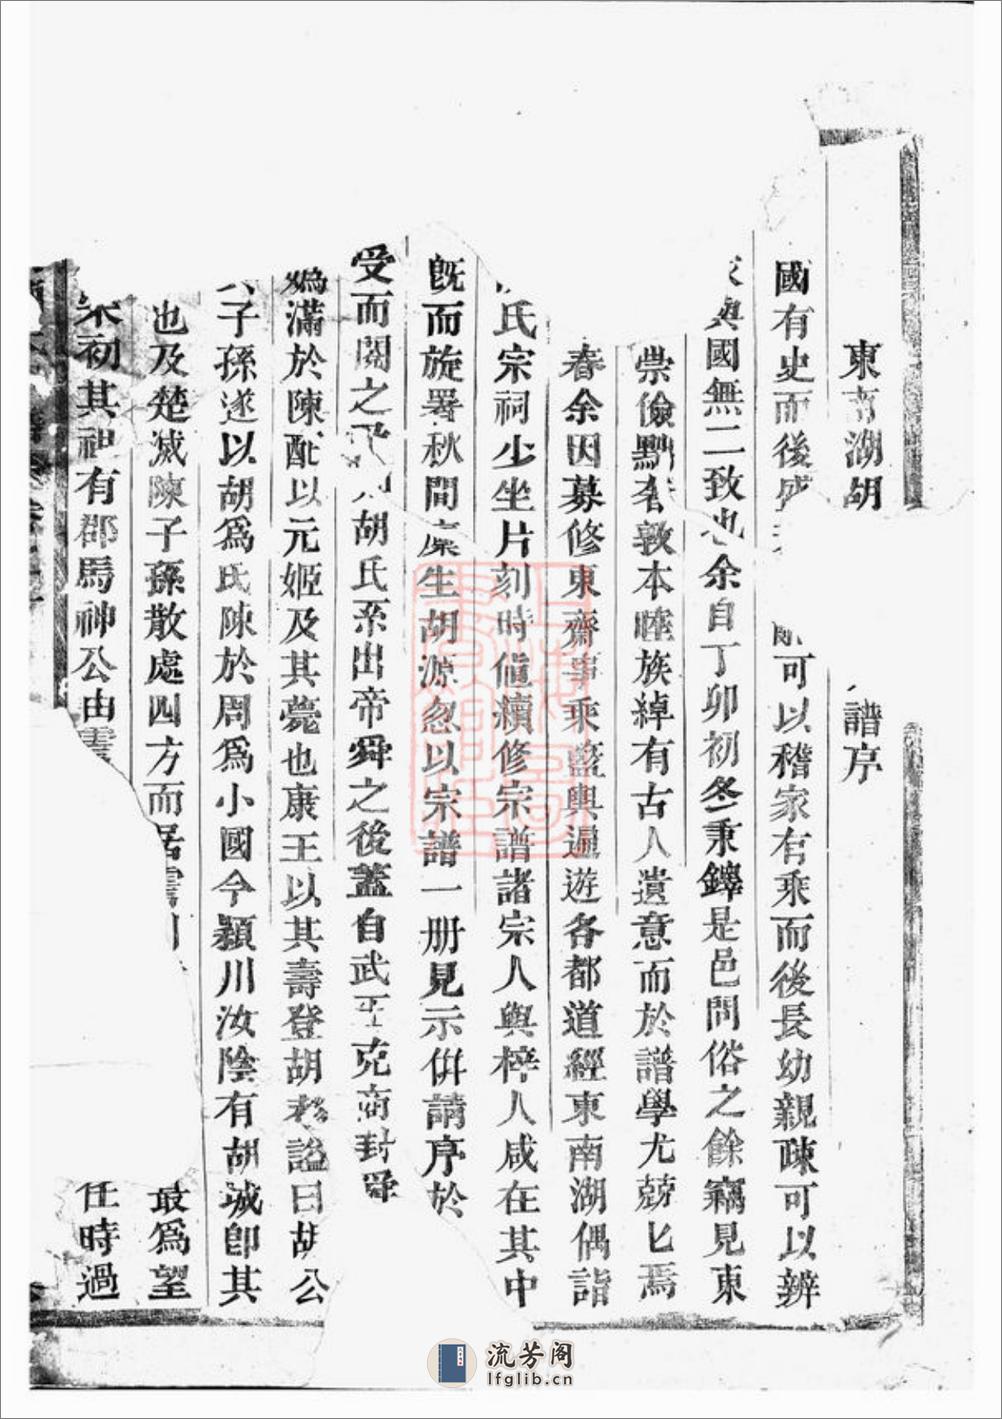 東南湖胡 譜序
國有史而後盛 可以稽家有乘而後長幼親疎可以辨
與國無二致也余自丁卯初冬秉鐸是邑問俗之餘竊見東
崇儉黜奢敦本睦族綽有古人遺意而於譜學尤兢匕焉
春余因募修東齋事乘籃輿遍遊各都道經東南湖偶詣
氏宗祠少坐片刻時值續修宗譜諸宗人與梓人咸在其中
旣而旋署秋間廩生胡源忽以宗譜一册見示併請序於
受而閱之 胡氏系出帝舜之後蓋自武王克商封舜
嬀滿於陳配以元姬及其薨也康王以其壽登胡耇謚曰胡公
子孫遂以胡爲氏陳於周爲小國今潁川汝陰有胡城卽其
也及楚滅陳子孫散處四方而居 最爲望
宋初其祖有郡馬神公由 任時過
流芳阁
lfglib.cn